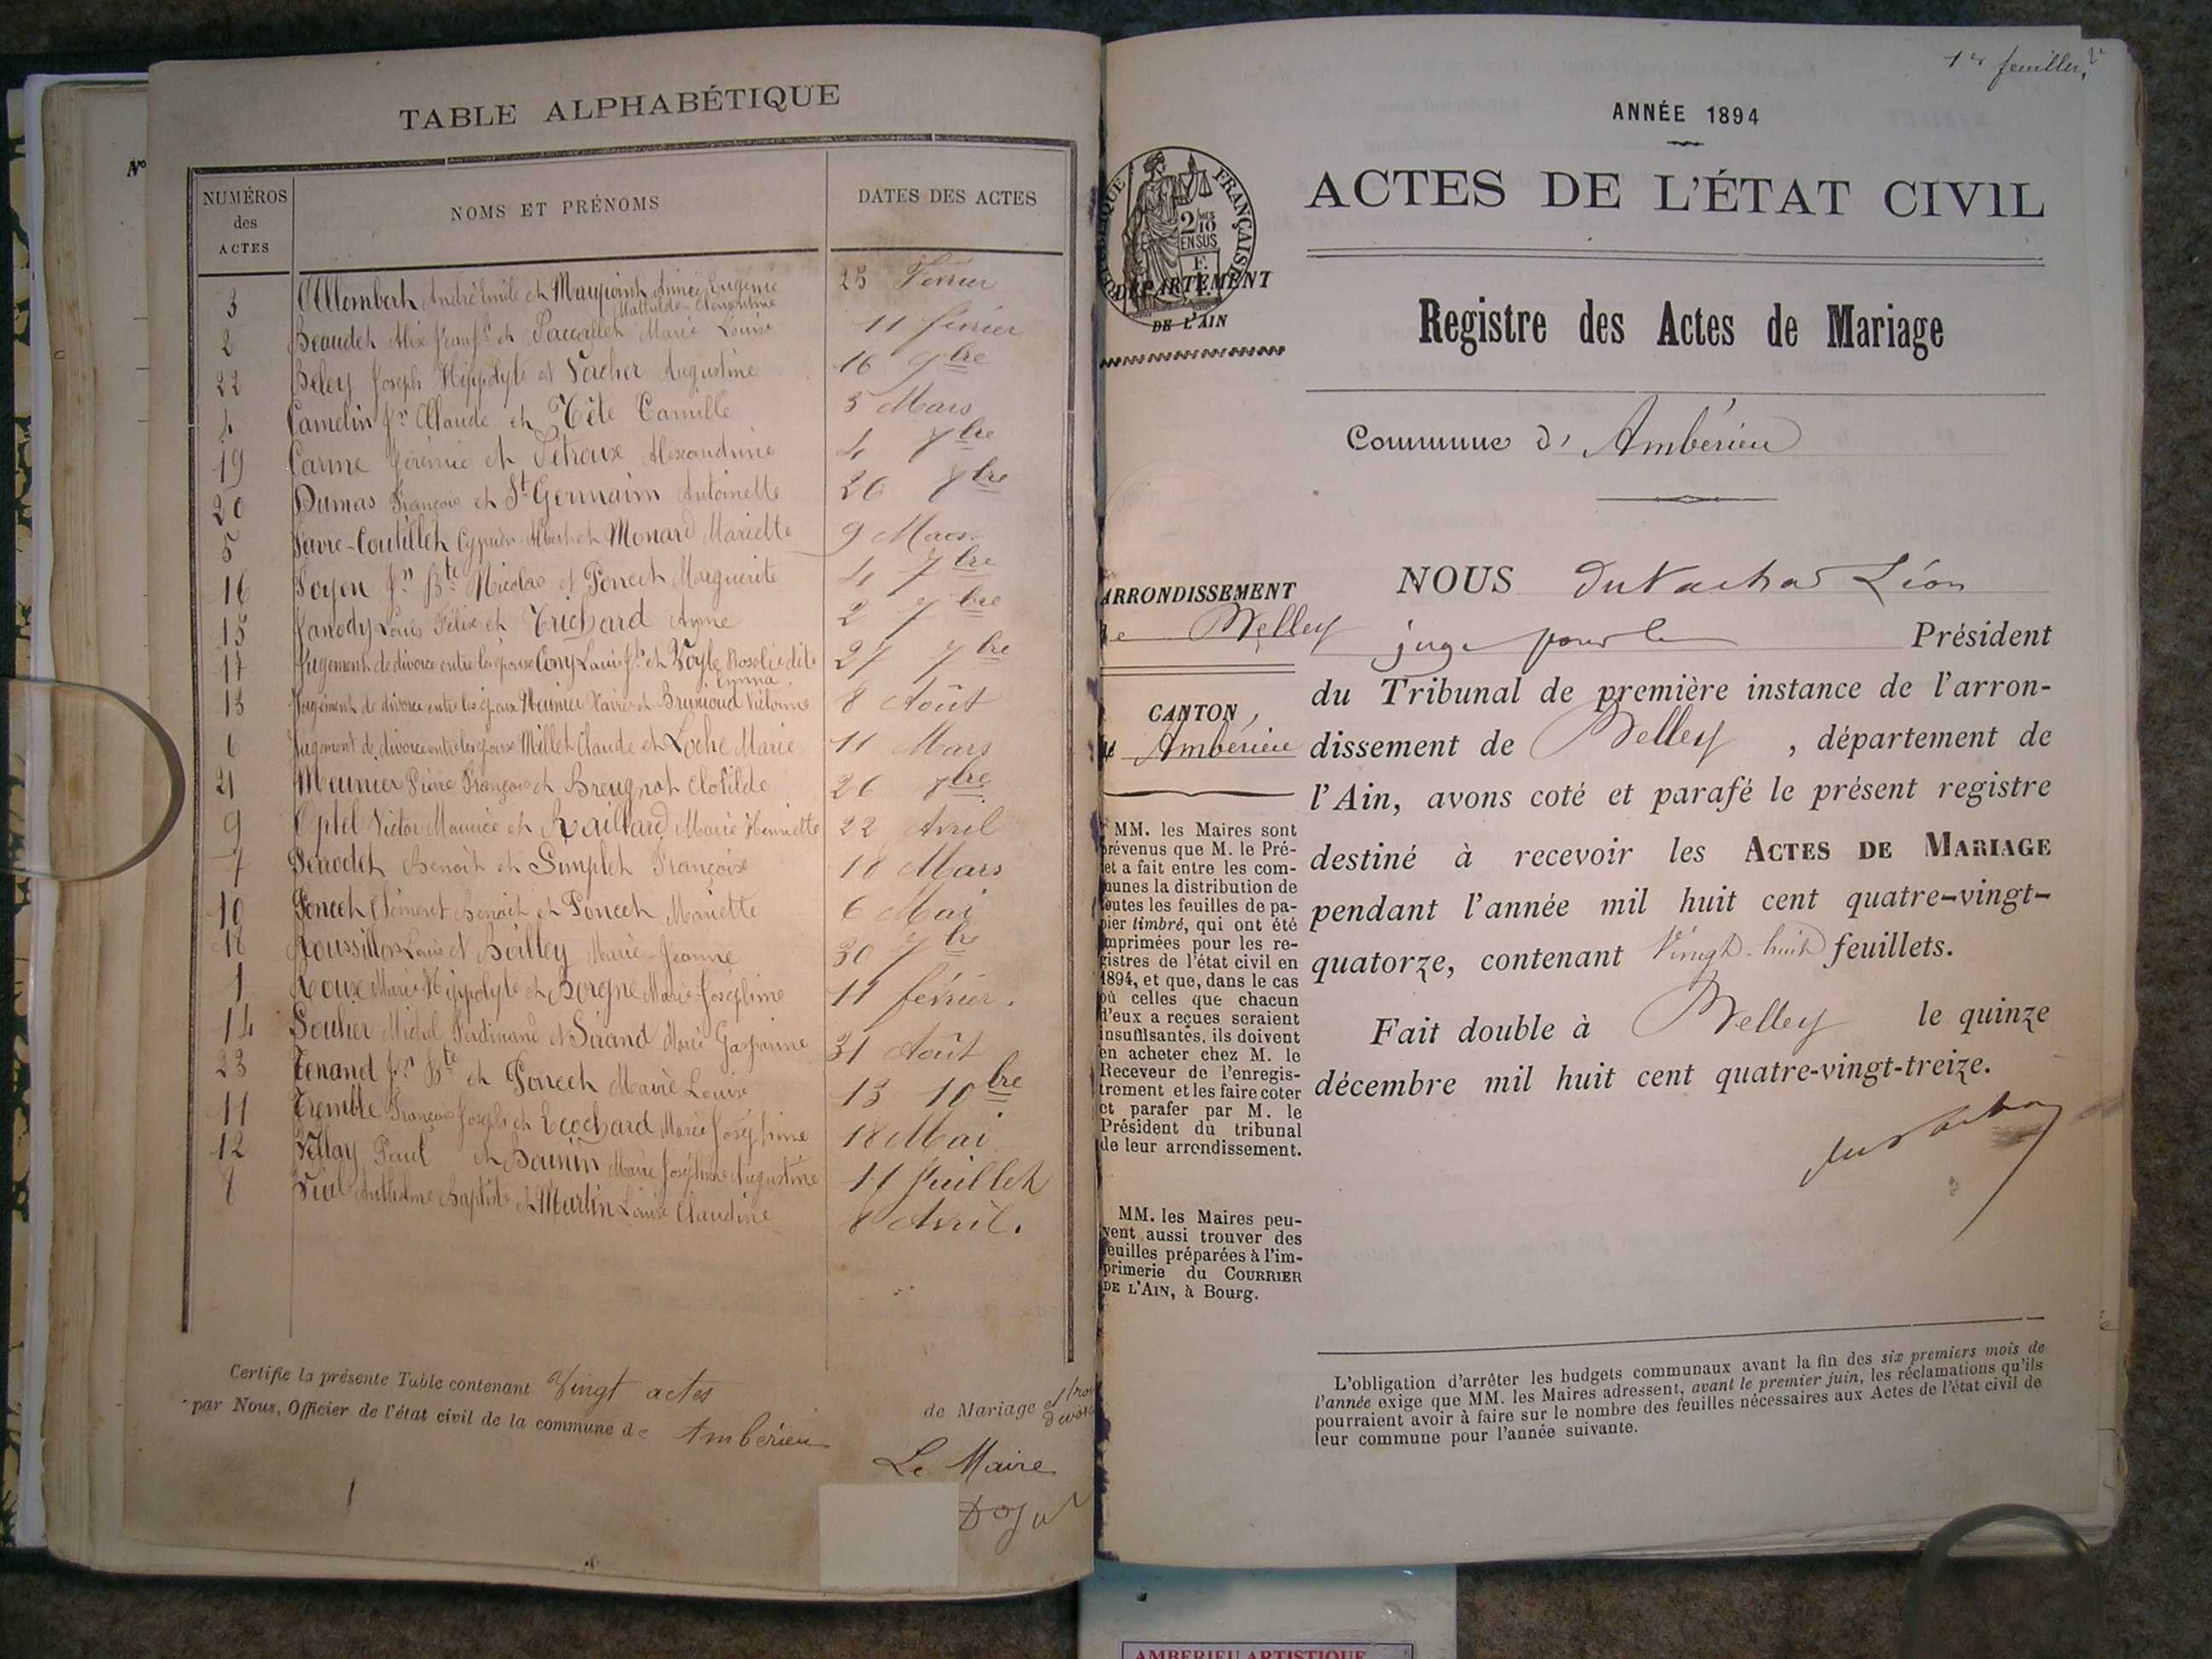 TABLE ALPHABÉTIQUE
NUMÉROS des ACTES
NOMS ET PRÉNOMS
DATES DES ACTES
3 Allombert André Emile et Maupoint Aimée Eugénie Mathilde-Clémentine 25 Février
2 Beaudet Alix et Marie Louise 11 février
22 Beley Joseph Hippolyte et Vacher Augustine 16 9bre
4 Camelin Jn Claude et Tête Camille 5 Mars
19 Carme Jérémie et Pétroux Alexandrine 4 8bre
20 Dumas François et St Germain Antoinette 26 8bre
5 Favre-Coutillet Cyprien Albert et Monard Mariette 9 Mars
16 Foyen Jn Bte Nicolas et Poncet Marguerite 4 7bre
15 Janody Louis Félix et Trichard Ayme 2 7bre
17 Jugement de divorce entre les époux Cony Louis et Rosalie dite Emma 27 7bre
13 Jugement de divorce entre les époux Meunier Xavier et Bruniaud Victorine 8 Août
6 Jugement de divorce entre les époux Millet Claude et Loche Marie 11 Mars
21 Meunier Pierre François et Breugnot Clotilde 26 8bre
9 Optel Victor Maurice et Raillard Marie Henriette 22 Avril
7 Perrodet Benoît et Simplet Françoise 18 Mars
10 Poncet Clément Benoit et Poncet Mariette 6 Mai
18 Roussillon Louis et Boilley Marie-Jeanne 30 7bre
1 Roux Marie Hippolyte et Borgne Marie Joséphine 11 février.
14 Soulier Michel Ferdinand et Sirand Marie Gasparine 31 Août
23 Tenand Jn Bte et Poncet Marie Louise 13 10bre
11 Tremble François Joseph et Ecochard Marie Joséphine 18 Mai
12 Vellay Paul et Marie Joséphine Augustine 11 Juillet
8 Vial Anthelme Baptiste et Martin Louise Claudine 8 Avril.
Certifie la présente Table contenant Vingt actes de Mariage et trois
par Nous, Officier de l'état civil de la commune de Ambérieu
Le Maire
1er feuillet
ANNÉE 1894
ACTES DE L'ÉTAT CIVIL
RÉPUBLIQUE FRANÇAISE
2/10 EN SUS
DÉPARTEMENT
DE L'AIN
Registre des Actes de Mariage
Commune d' Ambérieu
ARRONDISSEMENT
de Belley
CANTON
d' Ambérieu
MM. les Maires sont
prévenus que M. le Pré-
fet a fait entre les com-
munes la distribution de
toutes les feuilles de pa-
pier timbré, qui ont été
imprimées pour les re-
gistres de l'état civil en
1894, et que, dans le cas
où celles que chacun
d'eux a reçues seraient
insuffisantes, ils doivent
en acheter chez M. le
Receveur de l'enregis-
trement et les faire coter
et parafer par M. le
Président du tribunal
de leur arrondissement.
MM. les Maires peu-
vent aussi trouver des
feuilles préparées à l'im-
primerie du COURRIER
DE L'AIN, à Bourg.
NOUS Léon
juge pour le Président
du Tribunal de première instance de l'arron-
dissement de Belley , département de
l'Ain, avons coté et parafé le présent registre
destiné à recevoir les ACTES DE MARIAGE
pendant l'année mil huit cent quatre-vingt-
quatorze, contenant Vingt-huit feuillets.
Fait double à Belley le quinze
décembre mil huit cent quatre-vingt-treize.
L'obligation d'arrêter les budgets communaux avant la fin des six premiers mois de
l'année exige que MM. les Maires adressent, avant le premier juin, les réclamations qu'ils
pourraient avoir à faire sur le nombre des feuilles nécessaires aux Actes de l'état civil de
leur commune pour l'année suivante.
AMBERIEU ARTISTIQUE